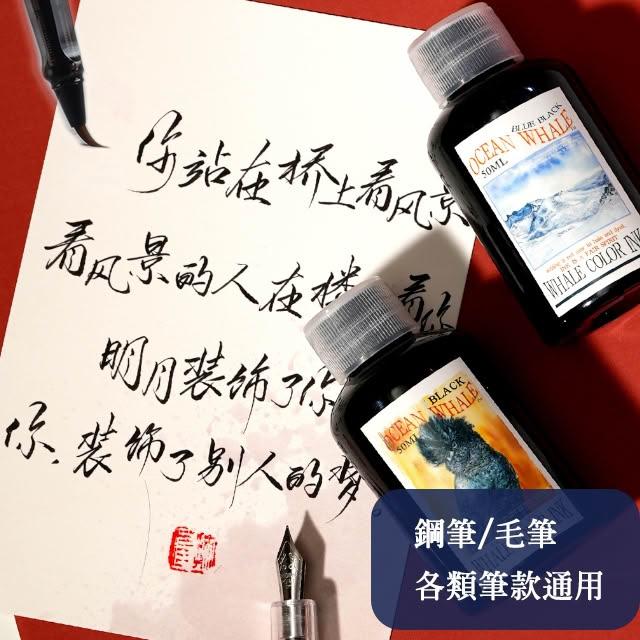 你站在桥上看风京
看风景的人在楼 看你
明月装饰了你
你装饰了别人的梦
BLUE BLACK
OCEAN WHALE
50ML
WHALE COLOR INK
BLACK
OCEAN WHALE
50ML
INK
鋼筆/毛筆
各類筆款通用